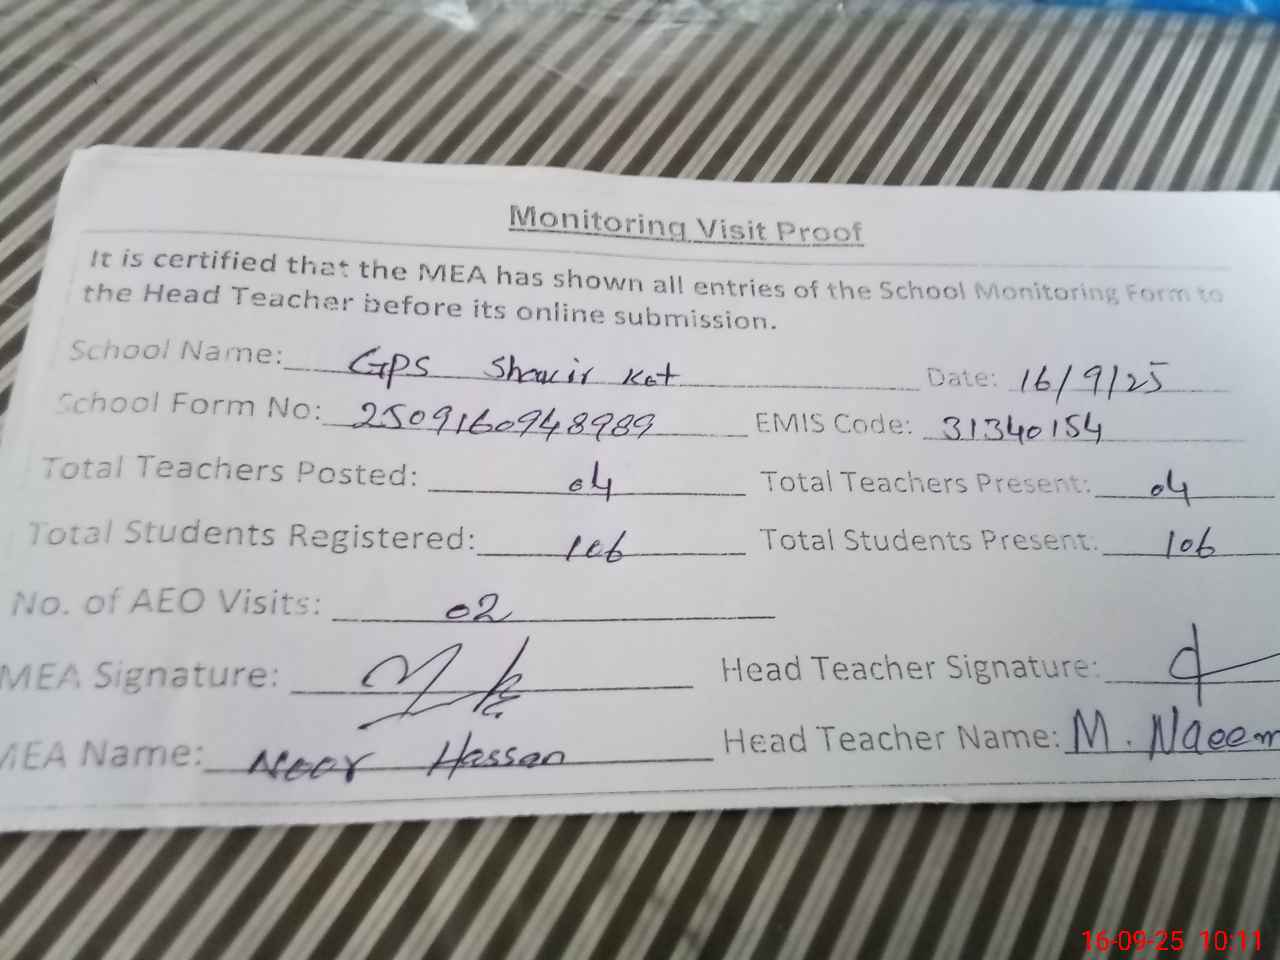 Monitoring Visit Proof
It is certified that the MEA has shown all entries of the School Monitoring Form to
the Head Teacher before its online submission.
School Name: GPS Kot Date: 16/9/25
School Form No: 2509160948989 EMIS Code: 31340154
Total Teachers Posted: 04 Total Teachers Present: 04
Total Students Registered: 106 Total Students Present: 106
No. of AEO Visits: 02
MEA Signature: Head Teacher Signature:
MEA Name: Noor Hassan Head Teacher Name: M. Naeem
16-09-25 10:11